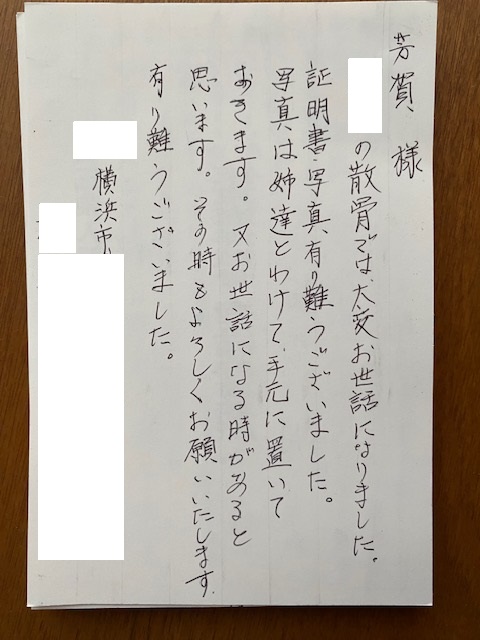 芳賀 様
の散骨では、大変お世話になりました。
証明書・写真、有り難うございました。
写真は姉達とわけて、手元に置いて
おきます。又お世話になる時があると
思います。その時もよろしくお願いいたします。
有り難うございました。
横浜市